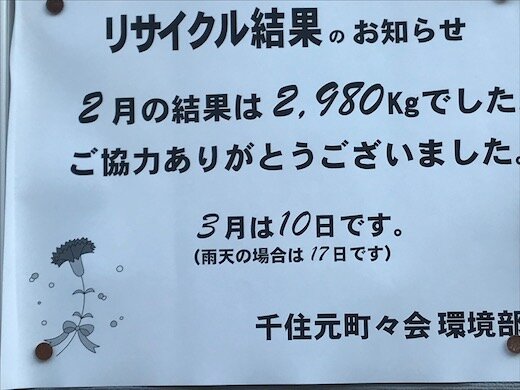 リサイクル結果のお知らせ
2月の結果は2,980Kgでした
ご協力ありがとうございました。
3月は10日です。
(雨天の場合は17日です)
千住元町々会 環境部